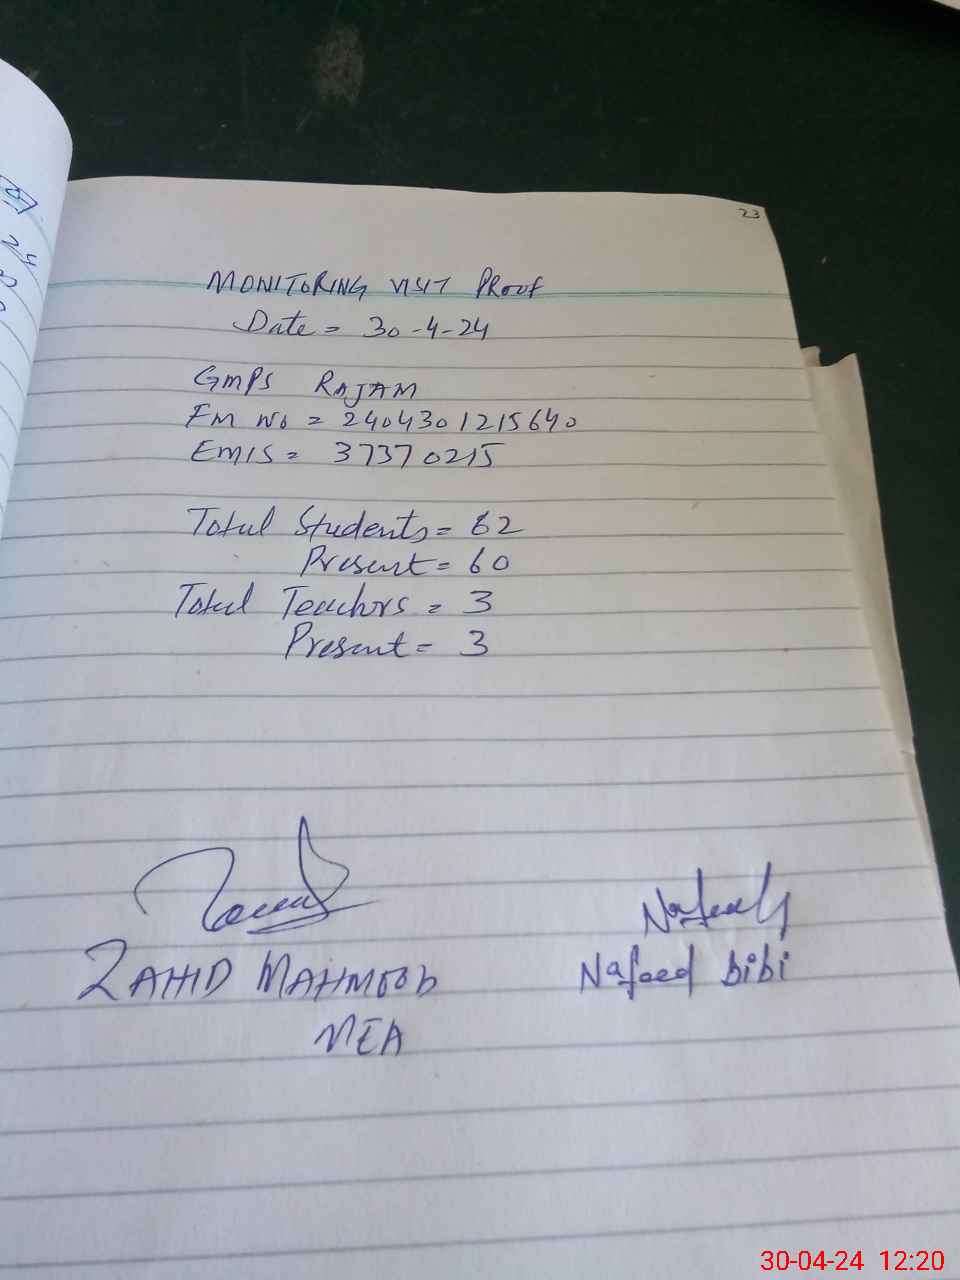 23
MONITORING VISIT PROOF
Date = 30-4-24
GMPS RAJAM
FM No = 2404301215640
EMIS = 37370215
Total Students = 62
Present = 60
Total Teachors = 3
Present = 3
ZAHID MAHMOOD
MEA
Nafeed bibi
30-04-24 12:20